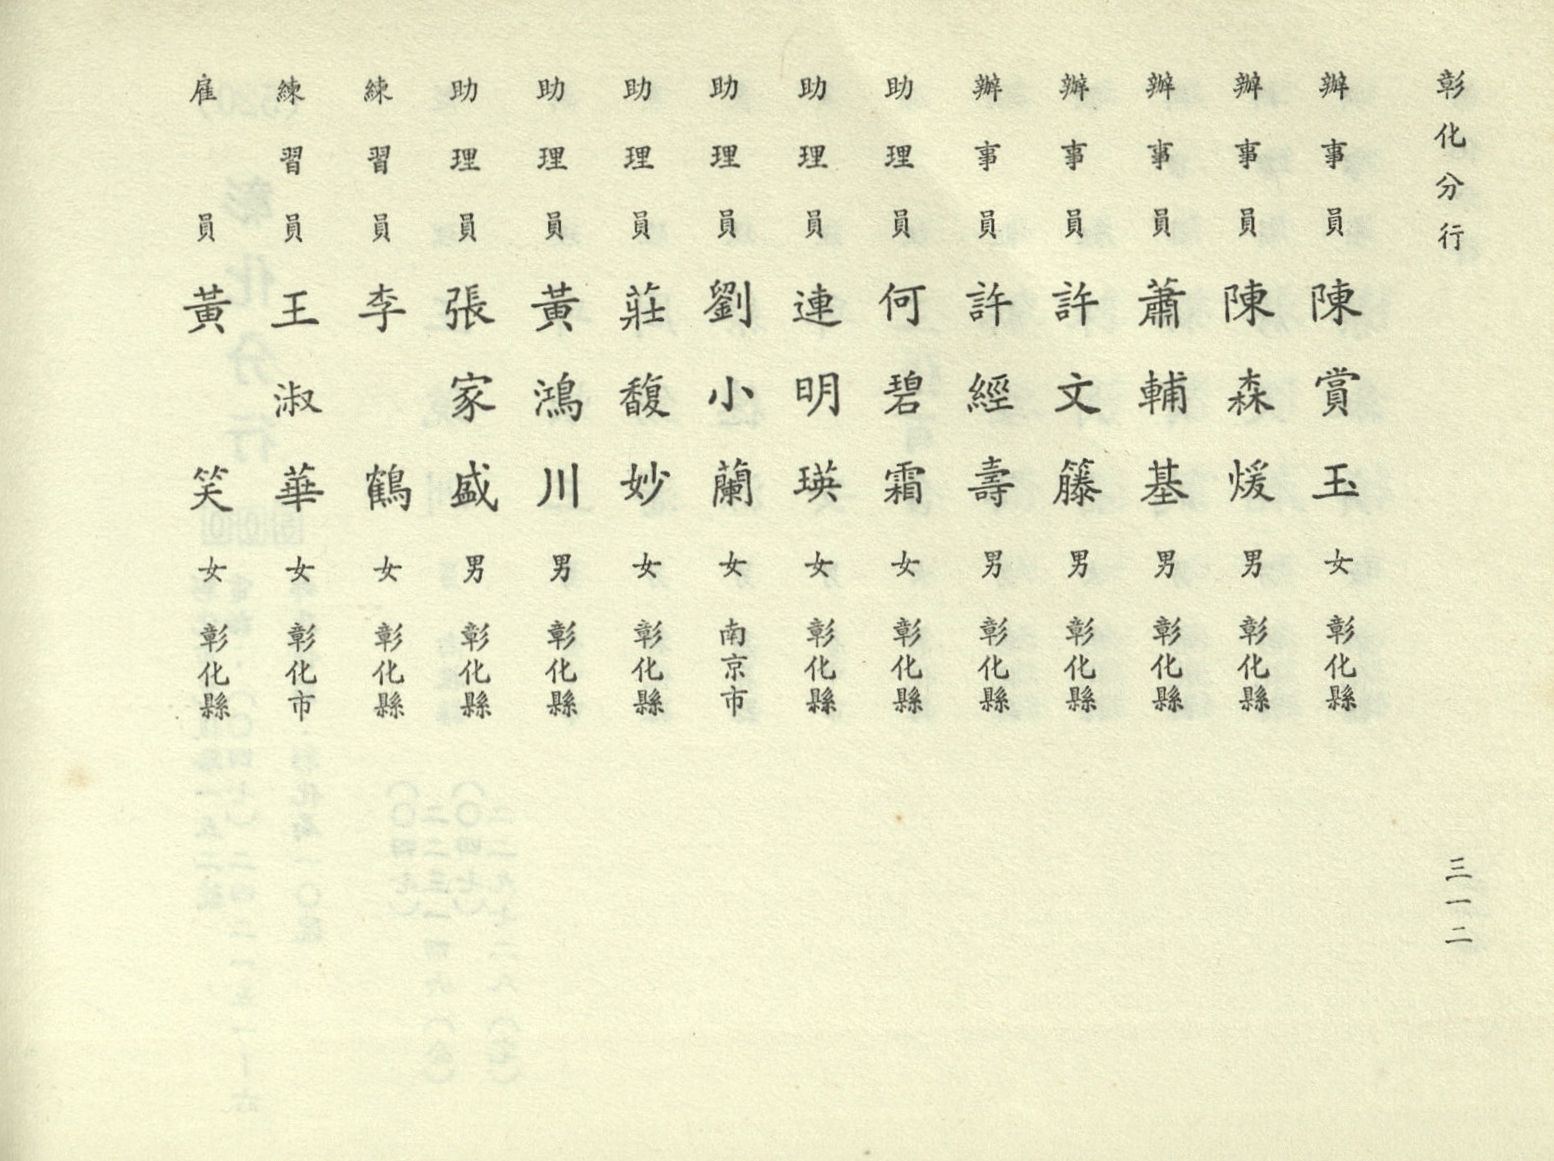 彰化分行
三一二
辦事員 陳賞玉 女 彰化縣
辦事員 陳森煖 男 彰化縣
辦事員 蕭輔基 男 彰化縣
辦事員 許文籐 男 彰化縣
辦事員 許經壽 男 彰化縣
助理員 何碧霜 女 彰化縣
助理員 連明瑛 女 彰化縣
助理員 劉小蘭 女 南京市
助理員 莊馥妙 女 彰化縣
助理員 黃鴻川 男 彰化縣
助理員 張家盛 男 彰化縣
練習員 李鶴 女 彰化縣
練習員 王淑華 女 彰化市
雇員 黃笑 女 彰化縣